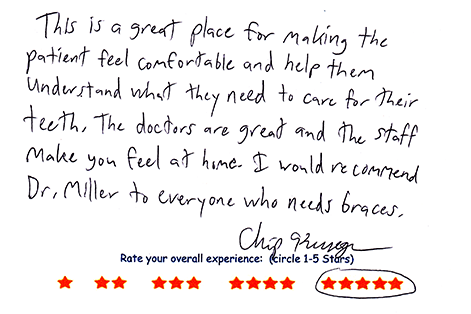 This is a great place for making the
patient feel comfortable and help them
understand what they need to care for their
teeth. The doctors are great and the staff
make you feel at home. I would recommend
Dr. Miller to everyone who needs braces.
Chip
Rate your overall experience: (circle 1-5 Stars)